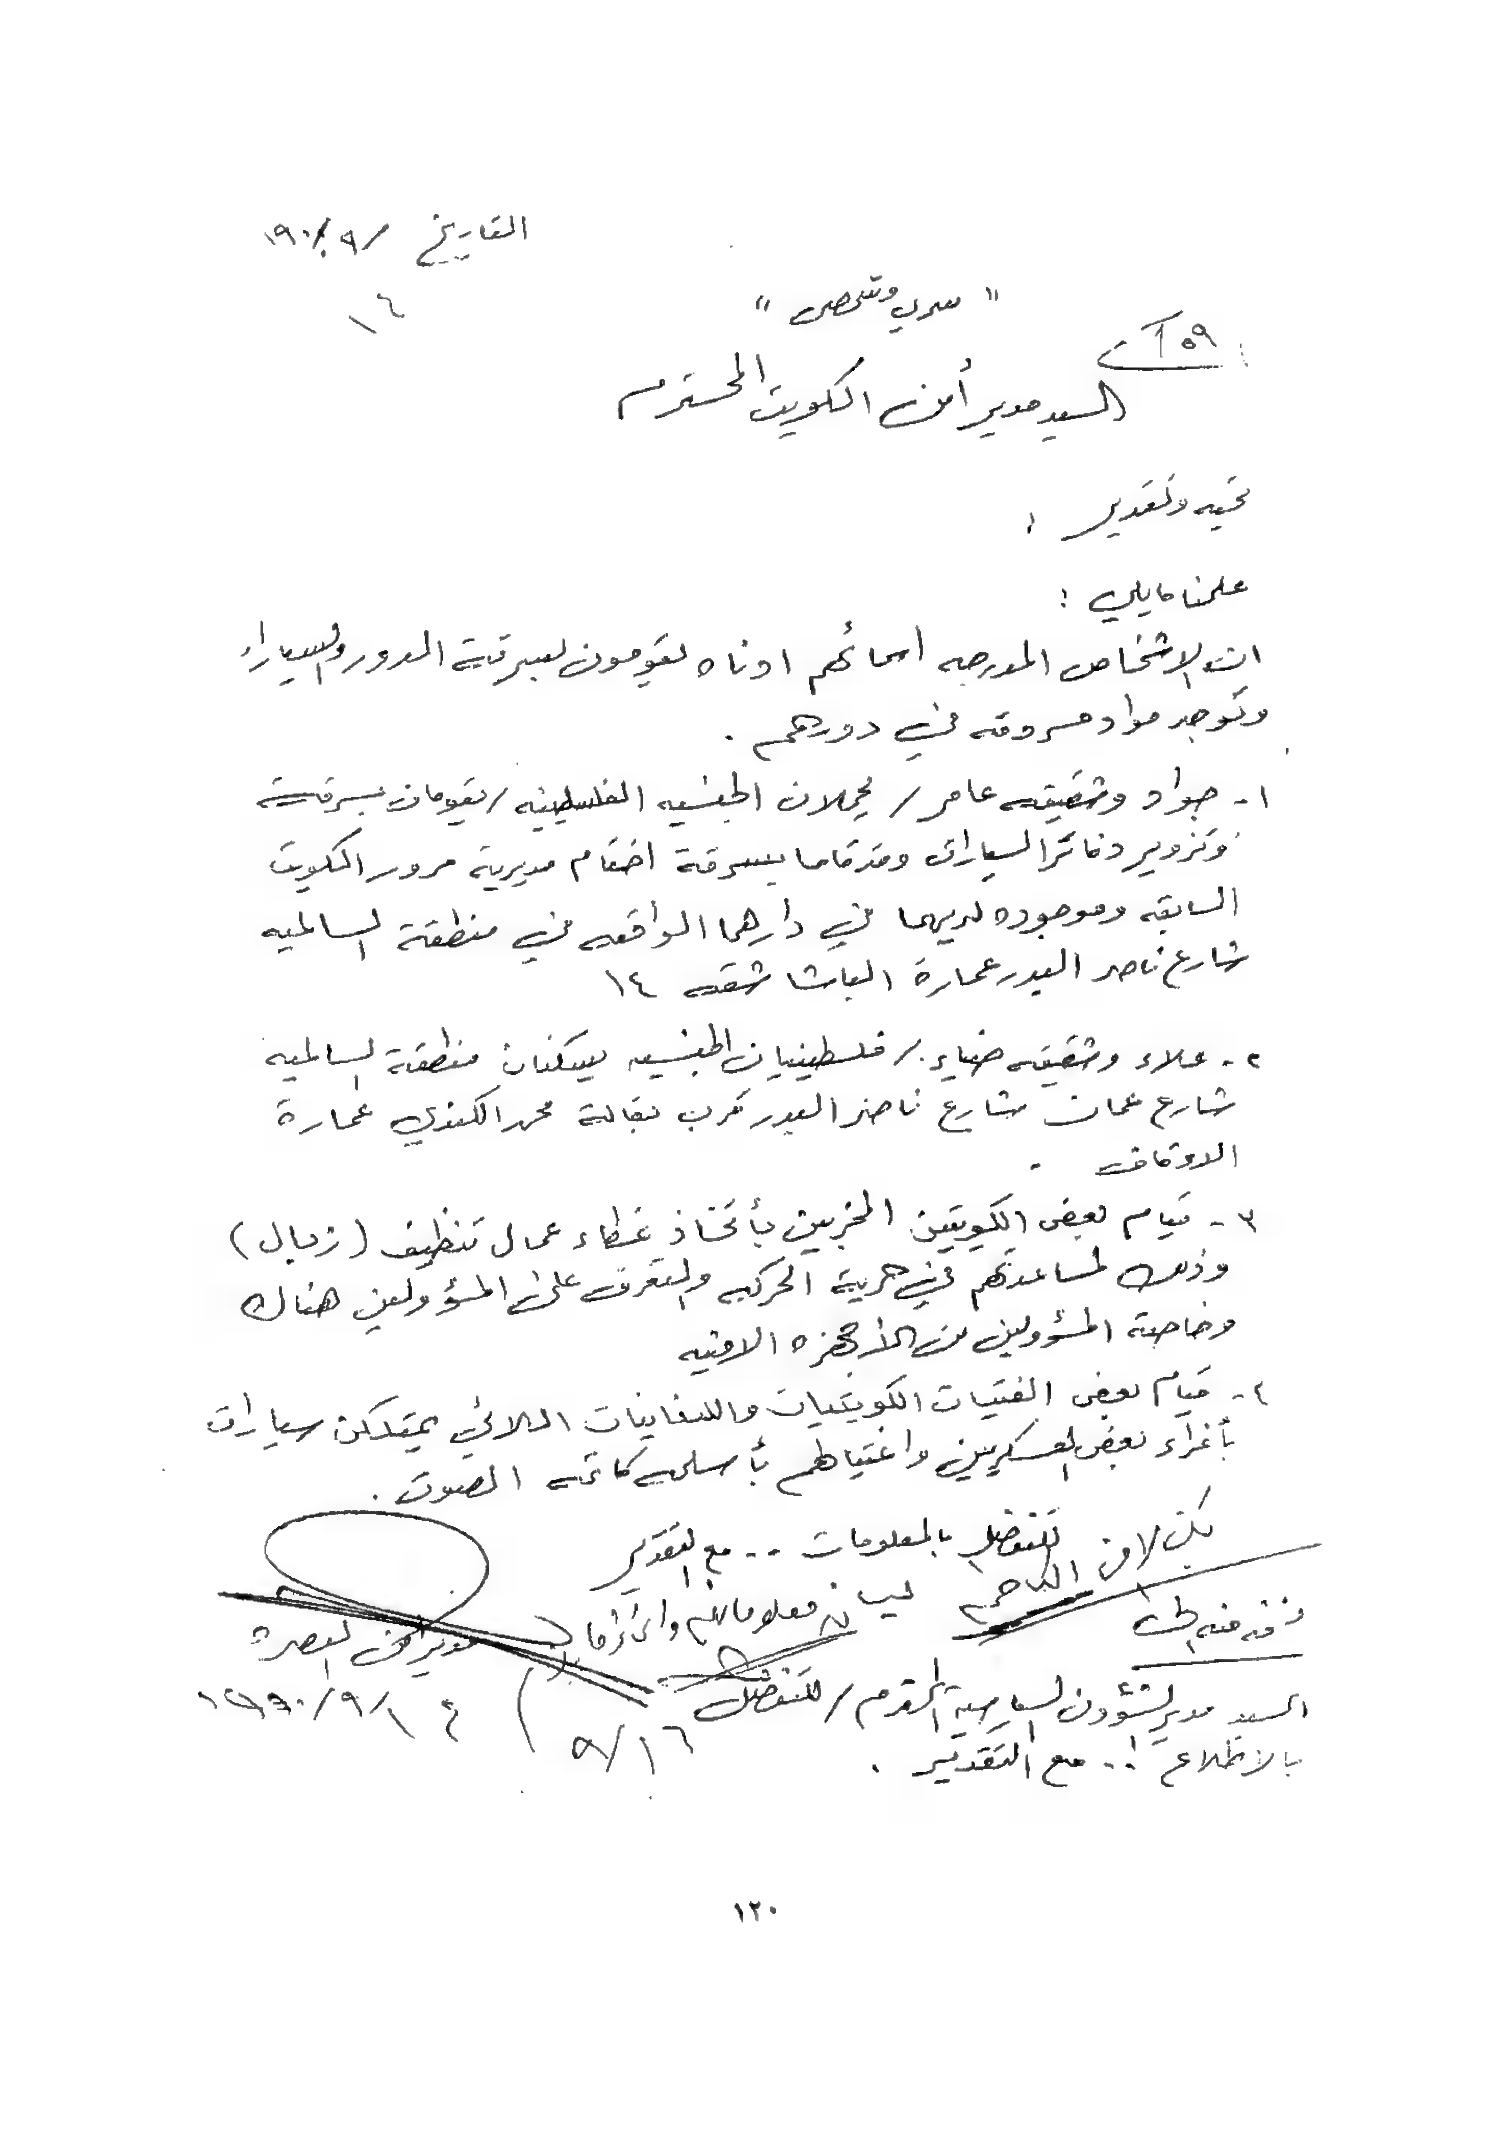 التاريخ / ٩ / ١٩٠
١٦
" سري وشخصي "
٥٩
السيد مدير أمن الكويت المحترم
تحيه وتقدير :
علمنا مايلي :
ان الاشخاص المدرجه اسمائهم ادناه يقومون بسرقة الدور والسيارات
وتوجد مواد مسروقه في دورهم .
١- جواد وشقيقه عامر / يحملان الجنسيه الفلسطينيه / يقومان بسرقة
وتزوير دفاتر السيارات وقد قاما بسرقة اختام مديرية مرور الكويت
السابقه وموجوده لديهما في دارهما الواقعه في منطقة السالميه
شارع ناصر البدر عمارة الباشا شقه ١٤
٢- علاء وشقيقه ضياء / فلسطينيان الجنسيه يسكنان منطقة السالميه
شارع عمان شارع ناصر البدر قرب بقالة محمد الكندي عمارة
الاوقاف .
٣- قيام بعض الكويتين المخربين بأتخاذ غطاء عمال تنظيف ( زبال )
وذلك لمساعدتهم في حرية الحركه والتعرف على المسؤولين هناك
وخاصة المسؤولين من الأجهزه الامنيه
٤- قيام بعض الفتيات الكويتيات واللبنانيات اللائي يمتلكن سيارات
بأغراء بعض العسكريين واغتيالهم بأسلحه كاتمه الصوت .
للتفضل بالمعلومات .. مع التقدير
لبيان معلوماتهم
نسخه منه الى
مدير امن البصرة
١٩٩٠/٩/١٤
السيد مدير الشؤون السياسية المحترم / للتفضل
بالاطلاع .. مع التقدير .
٩/١٦
١٢٠